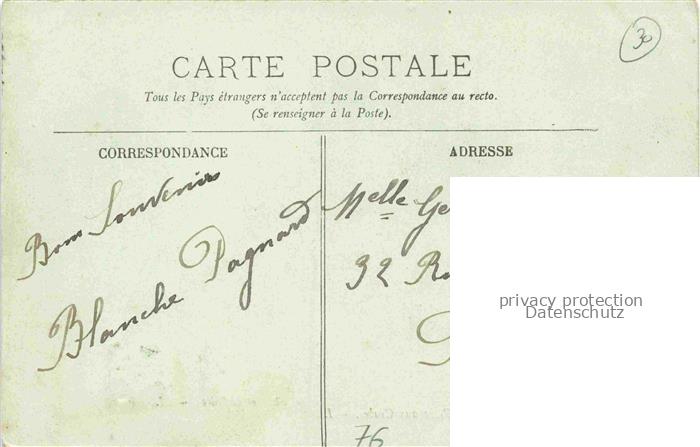 30
CARTE POSTALE
Tous les Pays étrangers n'acceptent pas la Correspondance au recto.
(Se renseigner à la Poste).
CORRESPONDANCE
ADRESSE
Bon Souvenir
Blanche Pagnard
Melle Ge
32 R
privacy protection
Datenschutz
76